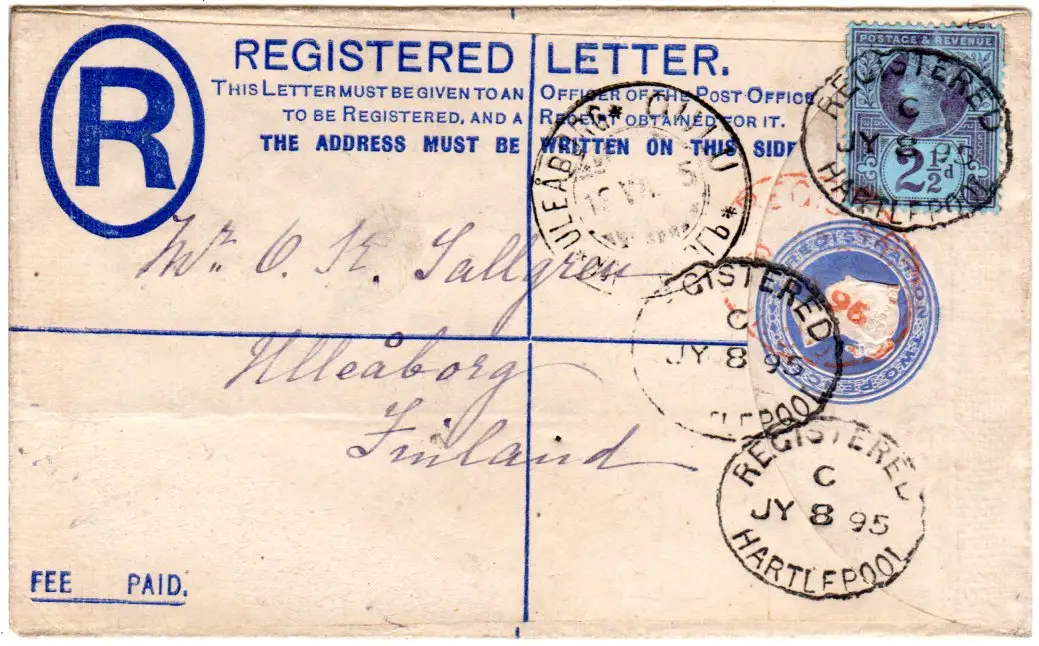 R
REGISTERED LETTER.
THIS LETTER MUST BE GIVEN TO AN OFFICER OF THE POST OFFICE
TO BE REGISTERED, AND A RECEIPT OBTAINED FOR IT.
THE ADDRESS MUST BE WRITTEN ON THIS SIDE
POSTAGE & REVENUE
2½d
REGISTERED
C
JY 8 95
HARTLEPOOL
ULEÅBORG * OULU *
Mr. O. K. Sallgren
Ulleåborg
Finland
REGISTRATION
GISTERED
C
JY 8 95
TLEPOOL
REGISTERED
C
JY 8 95
HARTLEPOOL
FEE PAID.